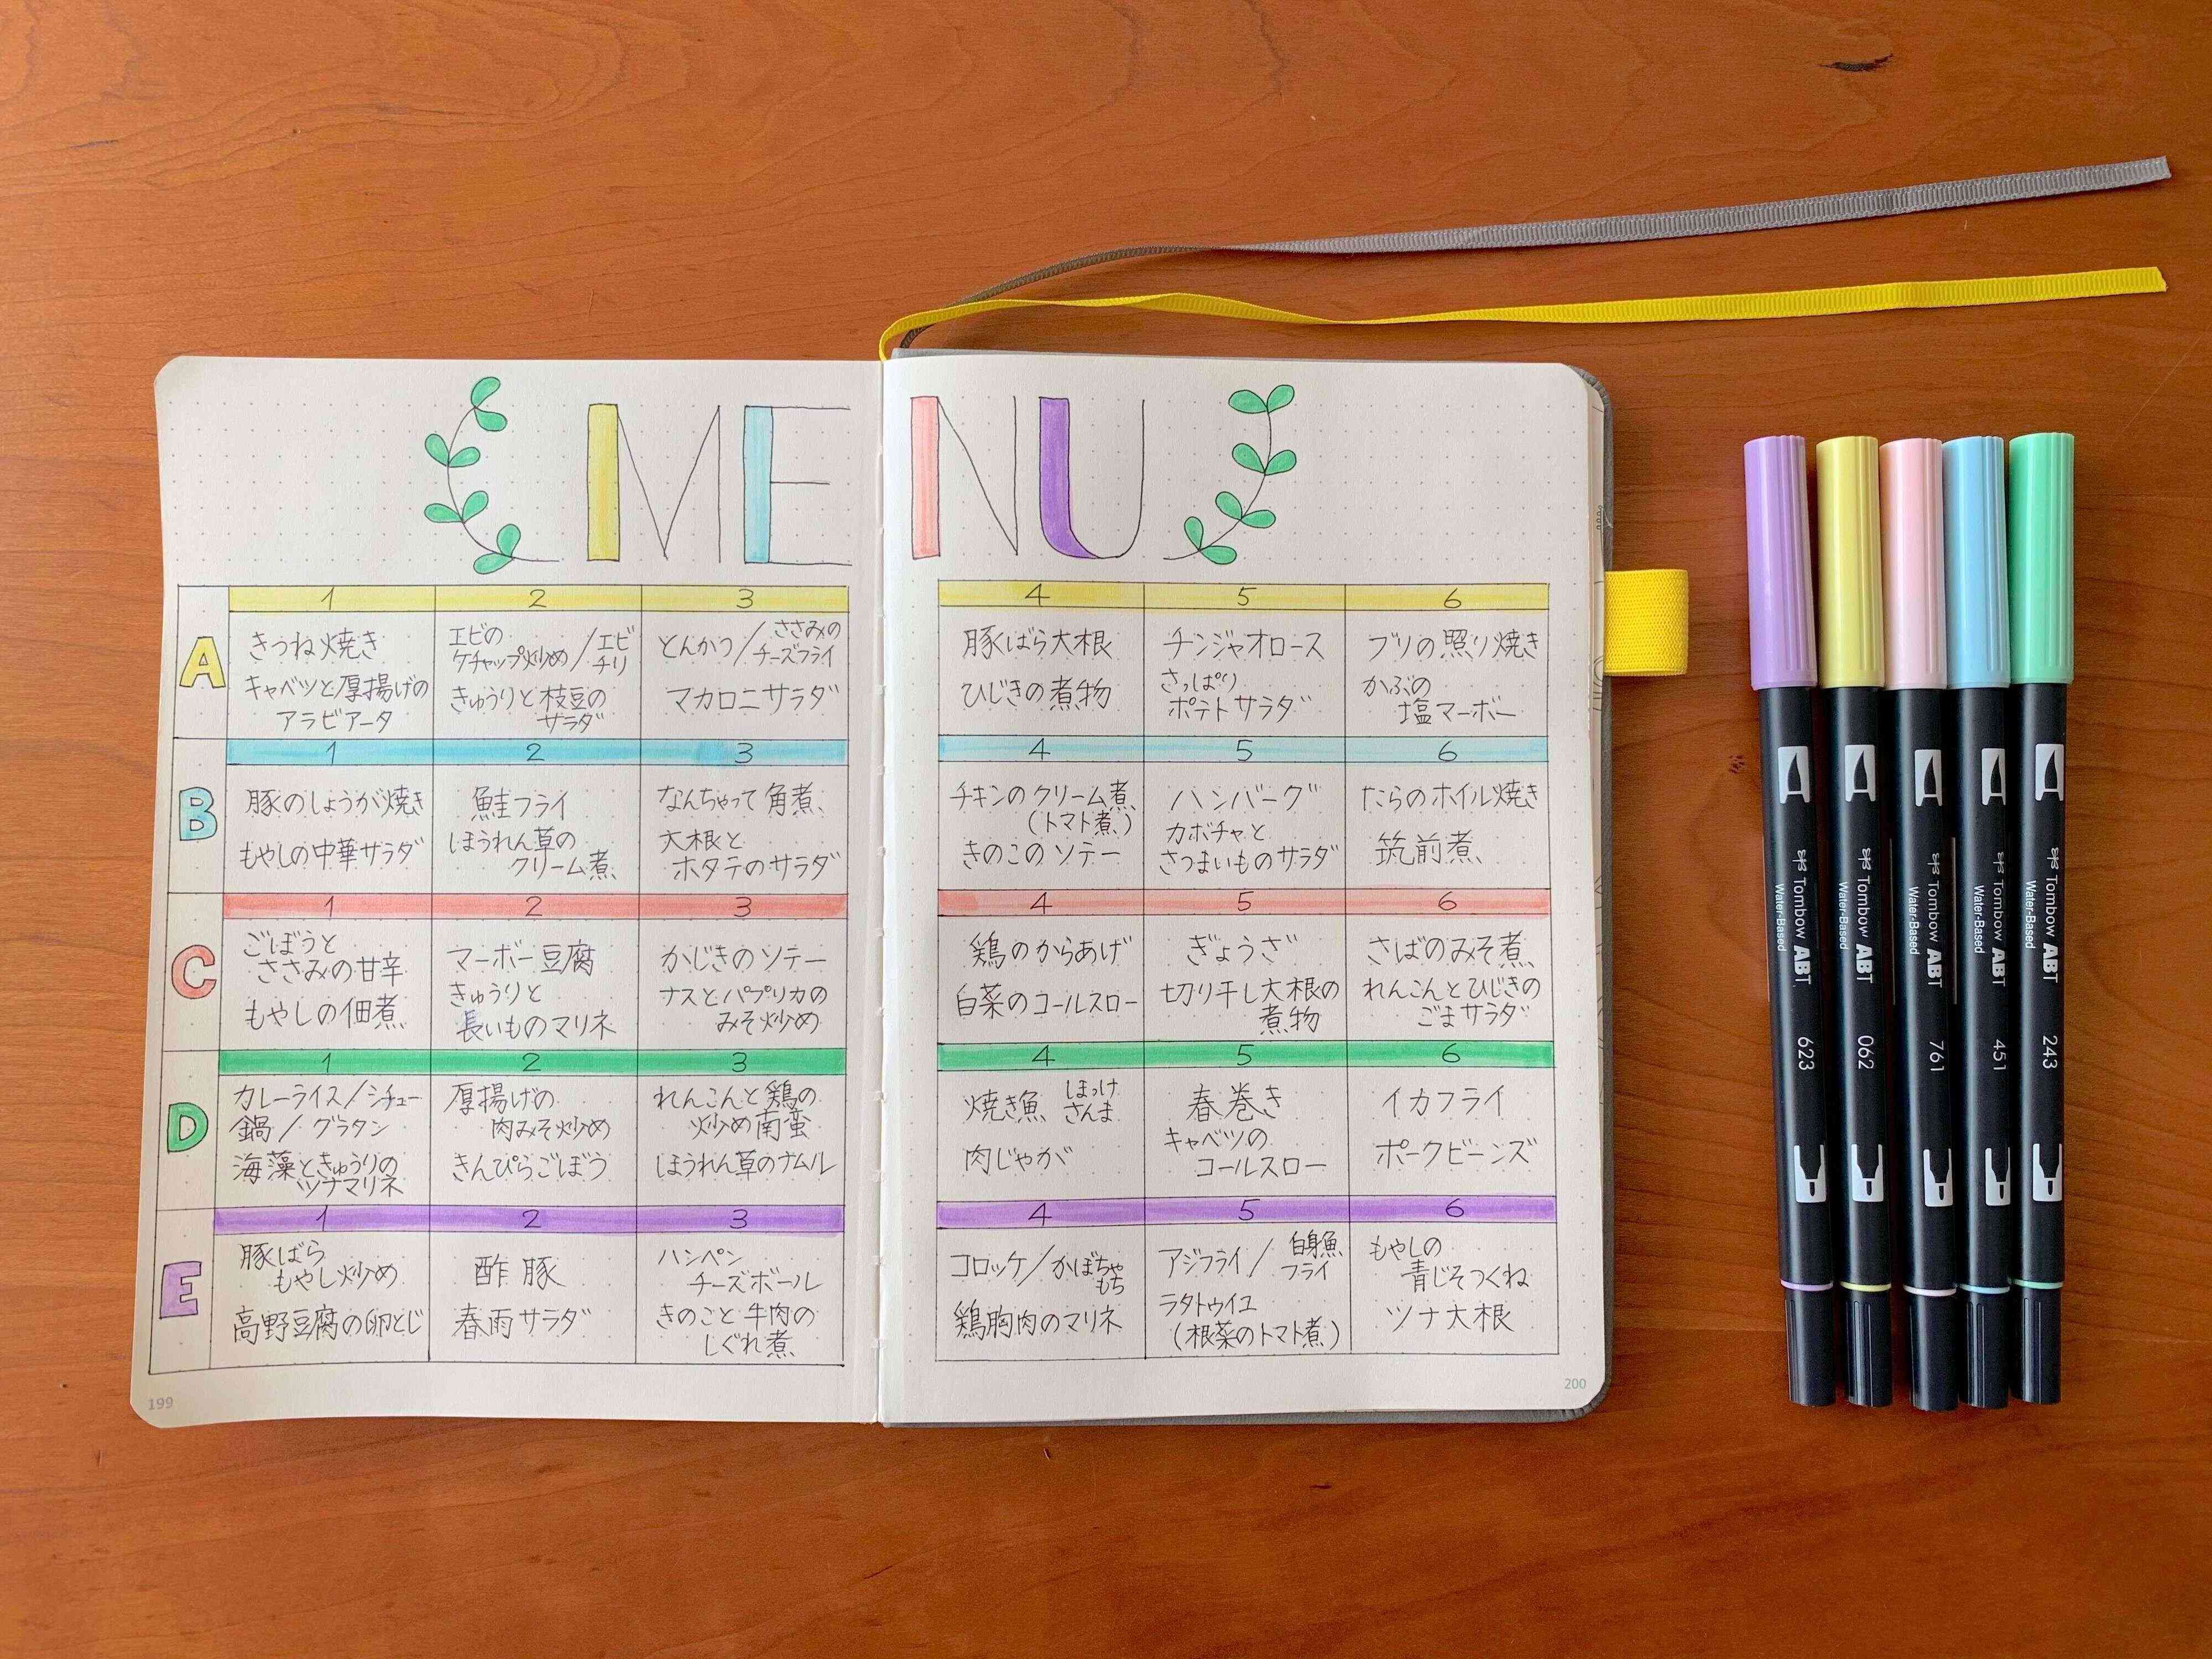 MENU
1 2 3 4 5 6
A
きつね焼き
キャベツと厚揚げの
アラビアータ
エビの
ケチャップ炒め/エビ
チリ
きゅうりと枝豆の
サラダ
とんかつ/ささみの
チーズフライ
マカロニサラダ
豚ばら大根
ひじきの煮物
チンジャオロース
さっぱり
ポテトサラダ
ブリの照り焼き
かぶの
塩マーボー
1 2 3 4 5 6
B
豚のしょうが焼き
もやしの中華サラダ
鮭フライ
ほうれん草の
クリーム煮
なんちゃって角煮
大根と
ホタテのサラダ
チキンのクリーム煮
(トマト煮)
きのこのソテー
ハンバーグ
カボチャと
さつまいものサラダ
たらのホイル焼き
筑前煮
1 2 3 4 5 6
C
ごぼうと
ささみの甘辛
もやしの佃煮
マーボー豆腐
きゅうりと
長いものマリネ
かじきのソテー
ナスとパプリカの
みそ炒め
鶏のからあげ
白菜のコールスロー
ぎょうざ
切り干し大根の
煮物
さばのみそ煮
れんこんとひじきの
ごまサラダ
1 2 3 4 5 6
D
カレーライス/シチュー
鍋/グラタン
海藻ときゅうりの
ツナマリネ
厚揚げの
肉みそ炒め
きんぴらごぼう
れんこんと鶏の
炒め南蛮
ほうれん草のナムル
焼き魚 ほっけ
さんま
肉じゃが
春巻き
キャベツの
コールスロー
イカフライ
ポークビーンズ
1 2 3 4 5 6
E
豚ばら
もやし炒め
高野豆腐の卵とじ
酢豚
春雨サラダ
ハンペン
チーズボール
きのこと牛肉の
しぐれ煮
コロッケ/かぼちゃ
もち
鶏胸肉のマリネ
アジフライ/白身魚
フライ
ラタトゥイユ
(根菜のトマト煮)
もやしの
青じそつくね
ツナ大根
199
200
Tombow ABT
Water-Based
623
Tombow ABT
Water-Based
062
Tombow ABT
Water-Based
761
Tombow ABT
Water-Based
451
Tombow ABT
Water-Based
243